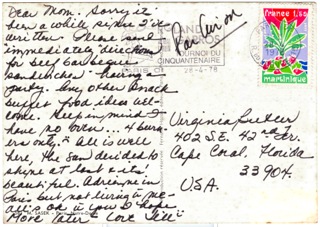 Dear Mom. Sorry it
been awhile since I've
written. Please send
immediately directions
for beef barbeque
sandwiches - having a
party. Any other
buffet food ideas wel-
come. Keeping mind I
have no oven... 4 burn-
ers only." All is well
here, the sun decided to
shine at last & its
beautiful. Adrienne in
Paris but not living w me-
all is ok
More later Love
Par Avion
TOURNOI DU
CINQUANTENAIRE
28-4-78
france 1,50
martinique
Virginia
402 S.E. 42nd
Cape Coral, Florida
33904.
U.S.A.